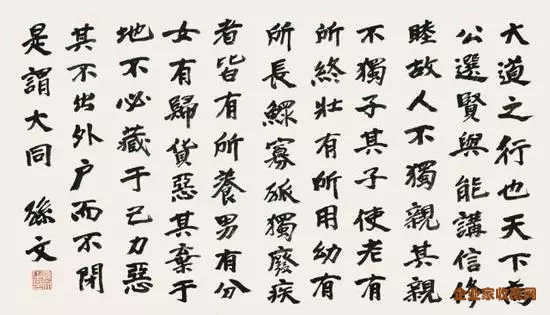 大道之行也天下為
公選賢與能講信修
睦故人不獨親其親
不獨子其子使老有
所終壯有所用幼有
所長鰥寡孤獨廢疾
者皆有所養男有分
女有歸貨惡其棄于
地不必藏于己力惡
其不出外户而不閉
是謂大同 孫文
企业家收藏网